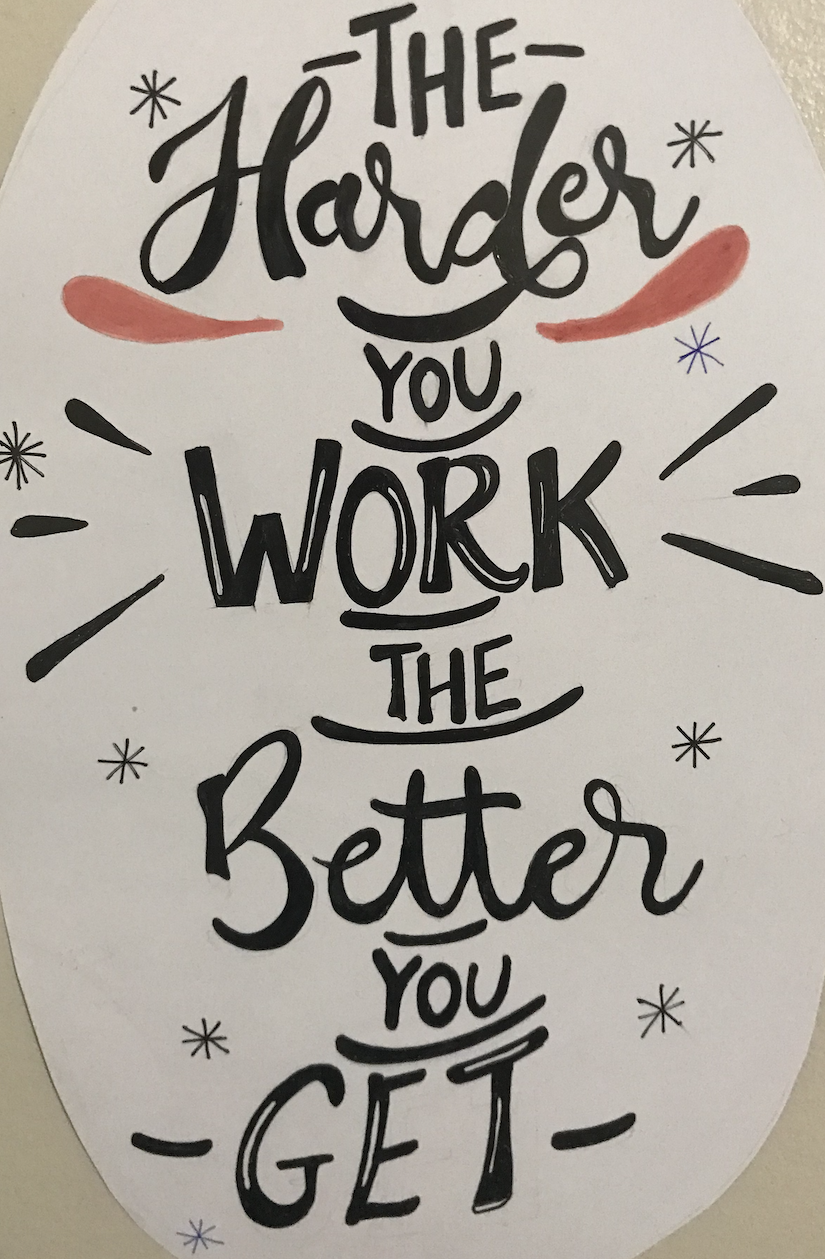 THE
Harder
YOU
WORK
THE
Better
YOU
GET